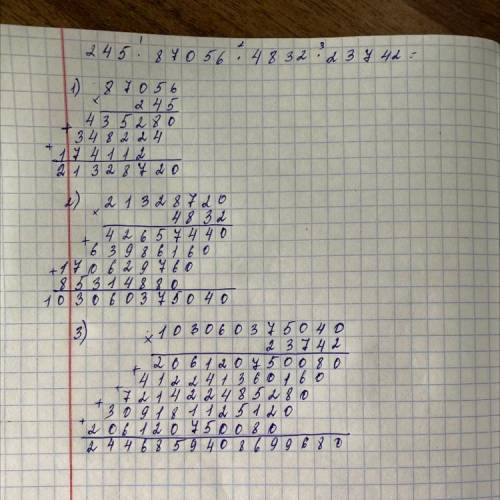 245 · ¹ 87056 · ² 4832 · ³ 23742 =
1) 87056
× 245
+ 435280
+ 348224
174112
21328720
2) 21328720
× 4832
+ 42657440
63986160
+ 170629760
85314880
103060375040
3) × 103060375040
23742
+ 206120750080
+ 412241360160
+ 721422485280
+ 309181125120
206120750080
2446859408699680